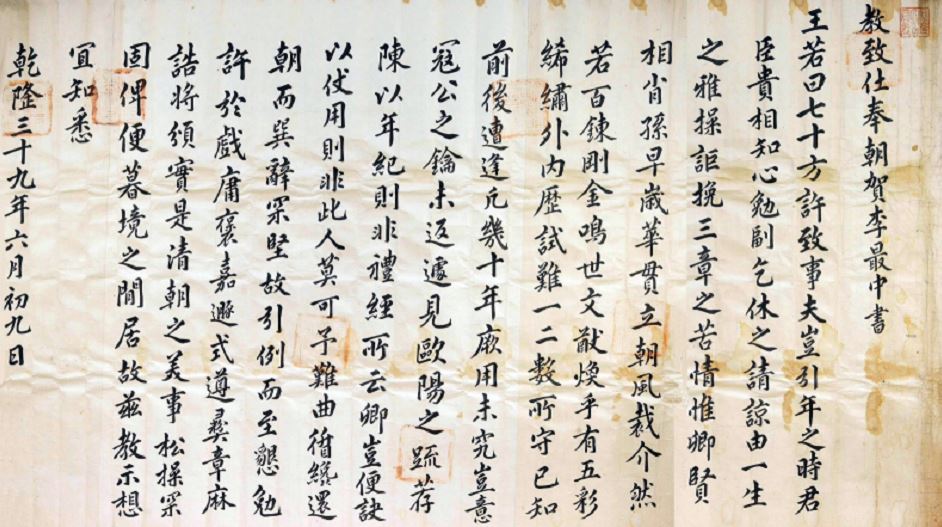 教致仕奉朝賀李最中書
王若曰七十方許致事夫豈引年之時君
臣貴相知心勉副乞休之請諒由一生
之雅操詎挽三章之苦情惟卿賢
相肖孫早歲華貫立朝風裁介然
若百鍊剛金鳴世文猷煥乎有五彩
絺繡外內歷試難一二數所守已知
前後遭逢凡幾十年厥用未究豈意
寇公之鑰未返遽見歐陽之䟽荐
陳以年紀則非禮經所云卿豈便訣
以仗用則非此人莫可予難曲循纔還
朝而巽辭罙堅故引例而至懇勉
許於戲庸褒嘉遯式遵彝章麻
誥將頒實是清朝之美事松操罙
固俾便暮境之閒居故玆教示想
宜知悉
乾隆三十九年六月初九日